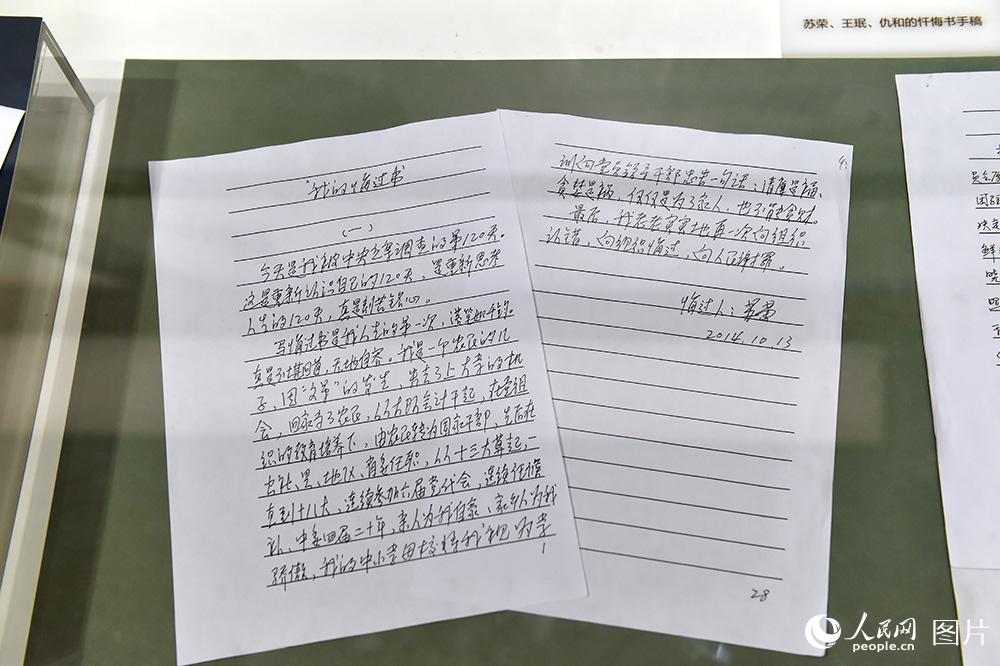 苏荣、王珉、仇和的忏悔书手稿
我的悔过书
（一）
今天是我被中央立案调查的第120天。
这是重新认识自己的120天，是重新思考
人生的120天，真是刻苦铭心。
写悔过书是我人生的第一次，落笔如千钧。
真是不堪回首，无地自容。我是一个农民的儿
子，因"文革"的发生，失去了上大学的机
会，回家当了农民，从大队会计干起，在党组
织的教育培养下，由农民转为国家干部，先后在
公社、县、地区、省委任职，从十三大算起，一
直到十八大，连续参加六届党代会，连续任候
补、中委四届二十年，亲人为我自豪、家乡人为我
骄傲，我的中小学母校将我视为学
1
训向党员领导干部忠告一句话：清廉是福、
贪婪是祸，仅仅是为了家人，也不能贪财。
最后，我老老实实地再一次向组织
认错，向组织悔过，向人民谢罪。
悔过人：苏荣
2014.10.13
28
决定
人民网 图片
people.cn